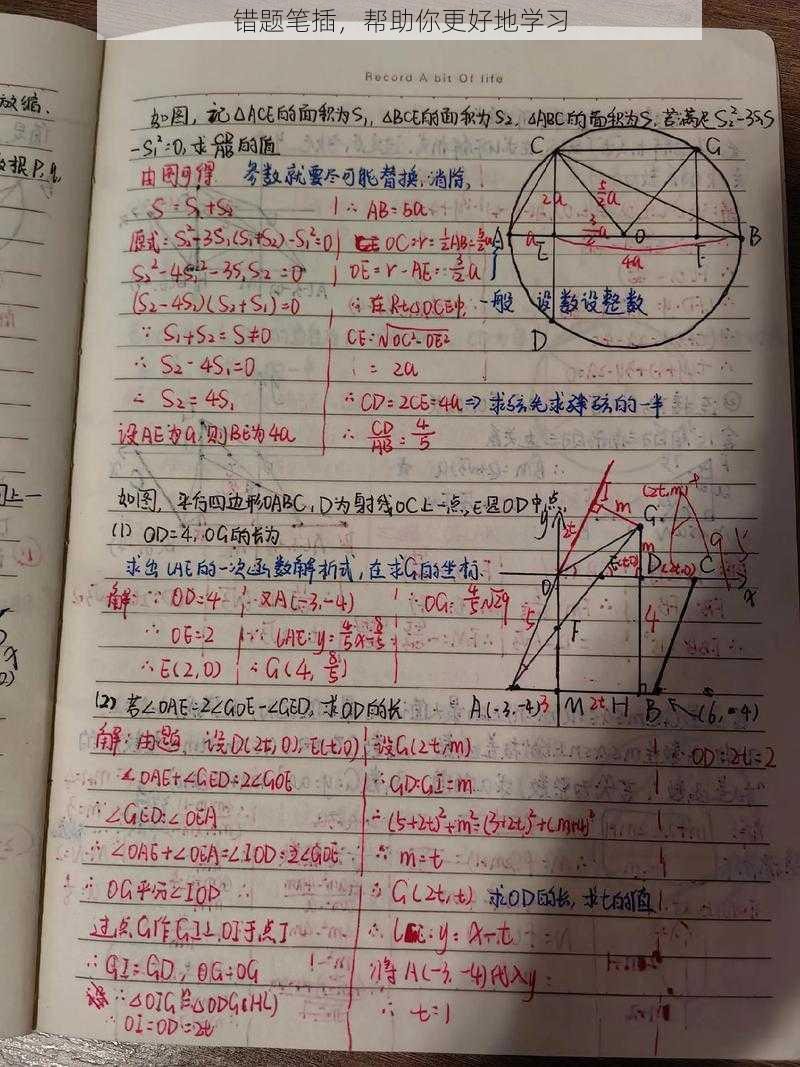 错题笔插，帮助你更好地学习
Record A bit Of life
放缩.
如图，记△ACE的面积为S₁，△BCE的面积为S₂，△ABC的面积为S，若满足S₂²-3S₁S
-S₁²=0，求CD/AB的值
由图可得 参数就要尽可能替换，消除，
S=S₁+S₂
原式=S₂²-3S₁(S₁+S₂)-S₁²=0
S₂²-4S₁²-3S₁S₂=0
(S₂-4S₁)(S₂+S₁)=0
∵ S₁+S₂=S≠0
∴ S₂-4S₁=0
∴ S₂=4S₁
设AE为a，则BE为4a
∴ AB=5a
OC=r=½AB=5/2a
OE=r-AE=3/2a
∴在Rt△OCE中，
CE=√OC²-OE²
=2a
∴CD=2CE=4a⇒求弦先求弦的一半
∴ CD/AB=4/5
一般 设数设整数
C
G
2a
5/2a
3/2a
A
a
E
O
F
B
4a
D
如图，平行四边形OABC，D为射线OC上一点，E是OD中点，
(1) OD=4，OG的长为
求出LAE的一次函数解析式，在求G的坐标.
解：∵ OD=4
∴ OE=2
∴E(2,0)
又A(-3,-4)
∴LAE:y=4/5x-8/5
∴G(4, 8/5)
∴OG=4/5√29
y
I
2t
m
G
(2t,m)
m
O
E(t,0)
D
(2t,0)
C
x
5
F
4
A(-3,-4)
3
M
2t
H
B
(6,-4)
(2) 若∠OAE=2∠GOE-∠GED，求OD的长
解：由题，设D(2t,0)，E(t,0)
∠OAE+∠GED=2∠GOE
∵∠GED=∠OEA
∴∠OAE+∠OEA=∠IOD=2∠GOE
∴ OG平分∠IOD
过点G作GI⊥OI于点I
∴GI=GD，OG=OG
∴△OIG≌△ODG(HL)
∴ OI=OD=2t
设G(2t,m)
∴GD=GI=m
∴(5+2t)²+m²=(3+2t)²+(m+4)²
∴ m=t
∴ G(2t,t) 求OD的长，求t的值
∴ y=x-t
将A(-3,-4)代入y
∴ t=1
OD=2t=2